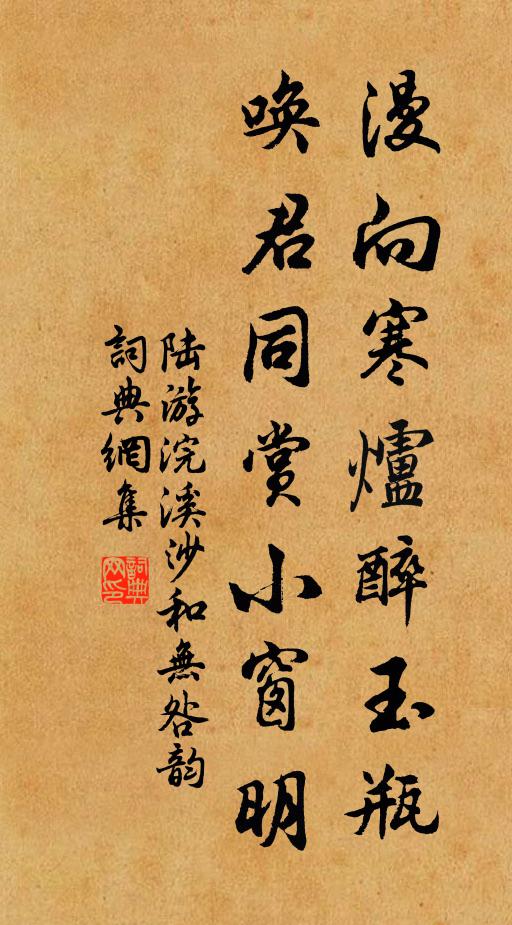 漫向寒爐醉玉瓶
喚君同賞小窗明
陆游浣溪沙和無咎韵
詞典網集
詞典网印